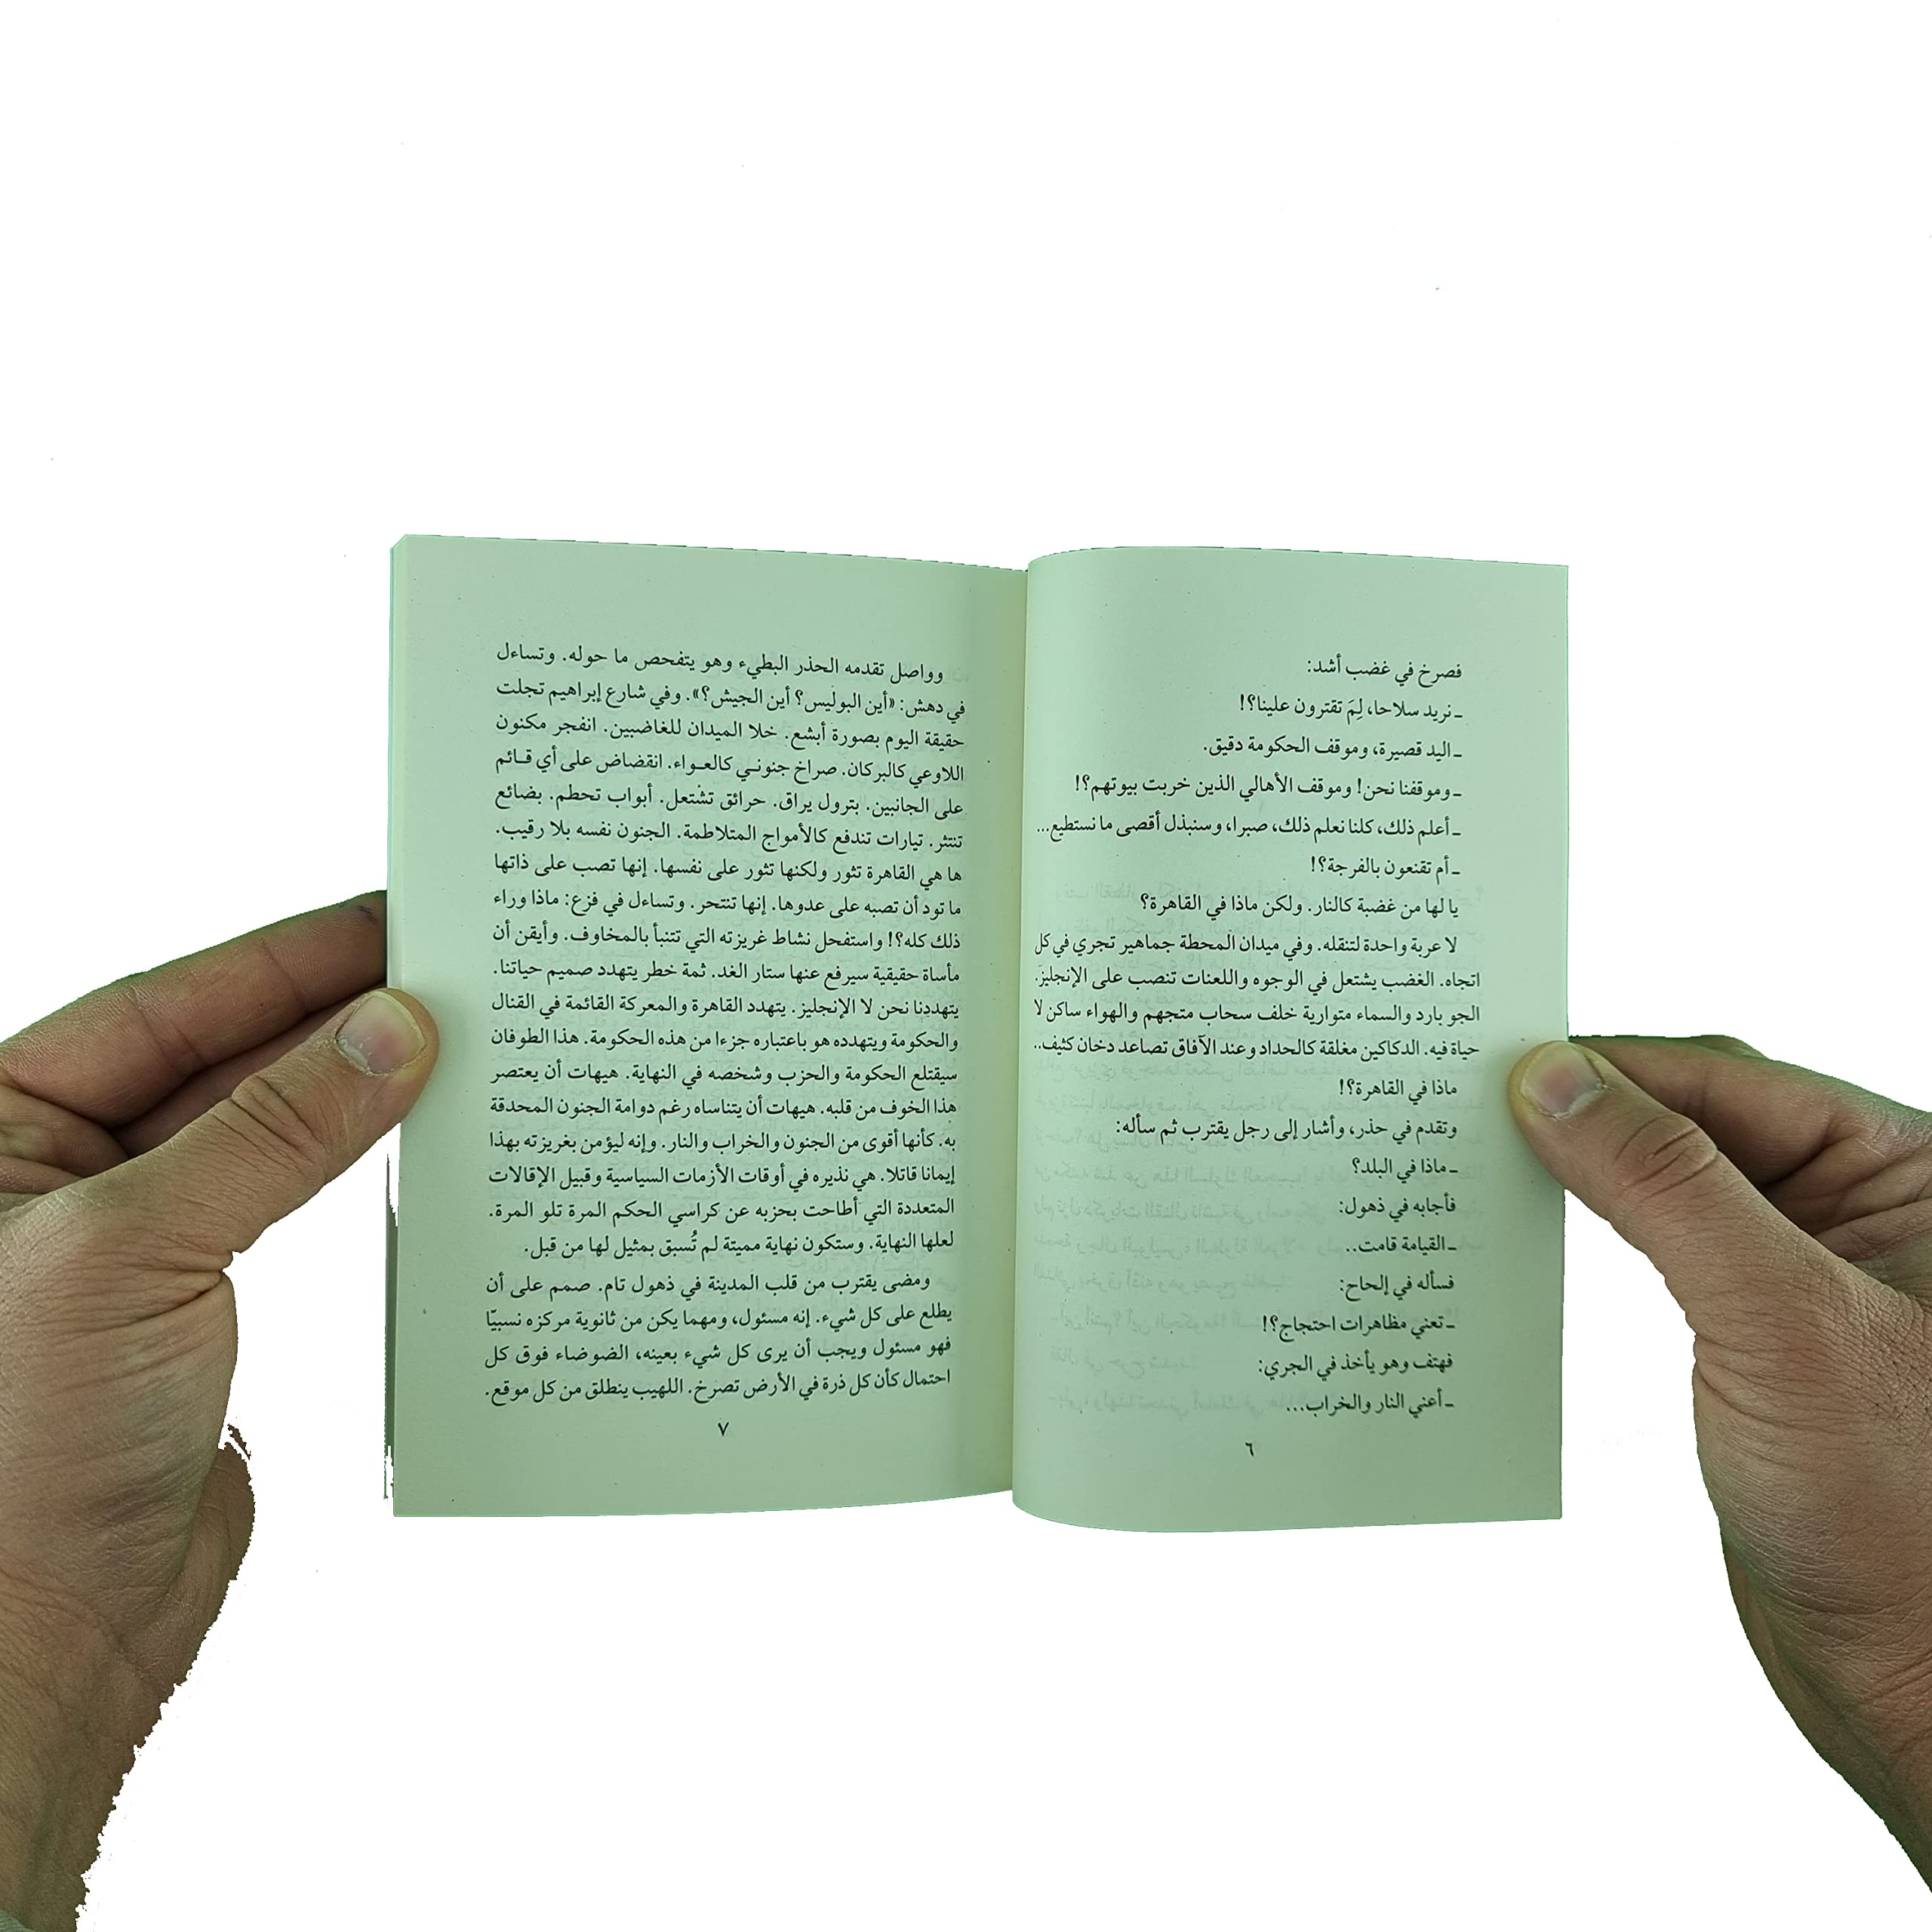 فصرخ في غضب أشد:
ـ نريد سلاحا، لِمَ تقترون علينا؟!
ـ اليد قصيرة، وموقف الحكومة دقيق.
ـ وموقفنا نحن! وموقف الأهالي الذين خربت بيوتهم؟!
ـ أعلم ذلك، كلنا نعلم ذلك، صبرا، وسنبذل أقصى ما نستطيع...
ـ أم تقنعون بالفرجة؟!
يا لها من غضبة كالنار. ولكن ماذا في القاهرة؟
لا عربة واحدة لتنقله. وفي ميدان المحطة جماهير تجري في كل
اتجاه. الغضب يشتعل في الوجوه واللعنات تنصب على الإنجليز.
الجو بارد والسماء متوارية خلف سحاب متجهم والهواء ساكن لا
حياة فيه. الدكاكين مغلقة كالحداد وعند الآفاق تصاعد دخان كثيف..
ماذا في القاهرة؟!
وتقدم في حذر، وأشار إلى رجل يقترب ثم سأله:
ـ ماذا في البلد؟
فأجابه في ذهول:
ـ القيامة قامت..
فسأله في إلحاح:
ـ تعني مظاهرات احتجاج؟!
فهتف وهو يأخذ في الجري:
ـ أعني النار والخراب...
٦
وواصل تقدمه الحذر البطيء وهو يتفحص ما حوله. وتساءل
في دهش: «أين البوليس؟ أين الجيش؟». وفي شارع إبراهيم تجلت
حقيقة اليوم بصورة أبشع. خلا الميدان للغاضبين. انفجر مكنون
اللاوعي كالبركان. صراخ جنوني كالعواء. انقضاض على أي قائم
على الجانبين. بترول يراق. حرائق تشتعل. أبواب تحطم. بضائع
تنتثر. تيارات تندفع كالأمواج المتلاطمة. الجنون نفسه بلا رقيب.
ها هي القاهرة تثور ولكنها تثور على نفسها. إنها تصب على ذاتها
ما تود أن تصبه على عدوها. إنها تنتحر. وتساءل في فزع: ماذا وراء
ذلك كله؟! واستفحل نشاط غريزته التي تتنبأ بالمخاوف. وأيقن أن
مأساة حقيقية سيرفع عنها ستار الغد. ثمة خطر يتهدد صميم حياتنا.
يتهددنا نحن لا الإنجليز. يتهدد القاهرة والمعركة القائمة في القنال
والحكومة ويتهدده هو باعتباره جزءا من هذه الحكومة. هذا الطوفان
سيقتلع الحكومة والحزب وشخصه في النهاية. هيهات أن يعتصر
هذا الخوف من قلبه. هيهات أن يتناساه رغم دوامة الجنون المحدقة
به. كأنها أقوى من الجنون والخراب والنار. وإنه ليؤمن بغريزته بهذا
إيمانا قاتلا. هي نذيره في أوقات الأزمات السياسية وقبيل الإقالات
المتعددة التي أطاحت بحزبه عن كراسي الحكم المرة تلو المرة.
لعلها النهاية. وستكون نهاية مميتة لم تُسبق بمثيل لها من قبل.
ومضى يقترب من قلب المدينة في ذهول تام. صمم على أن
يطلع على كل شيء. إنه مسئول، ومهما يكن من ثانوية مركزه نسبيّا
فهو مسئول ويجب أن يرى كل شيء بعينه، الضوضاء فوق كل
احتمال كأن كل ذرة في الأرض تصرخ. اللهيب ينطلق من كل موقع.
٧